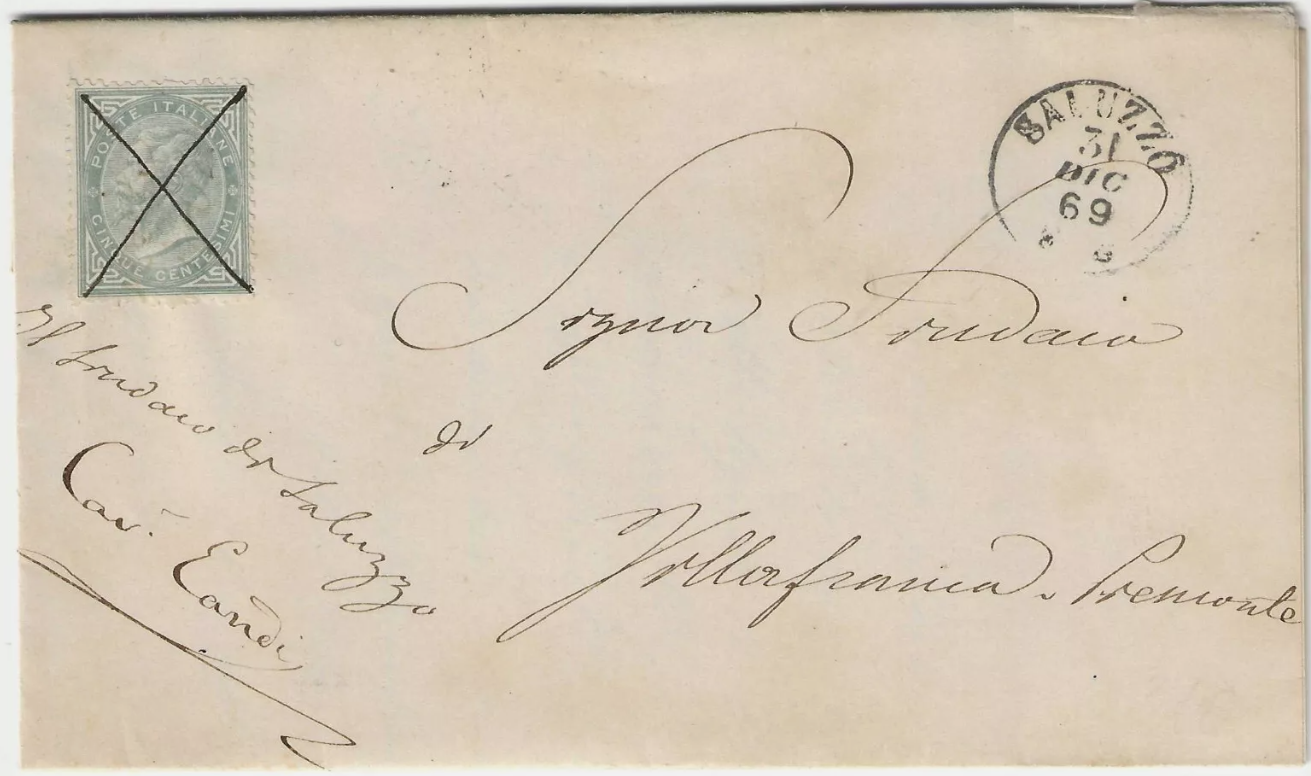 POSTE ITALIANE
CINQUE CENTESIMI
SALUZZO
31
DIC
69
Signor Sindaco
di
Villafranca Piemonte
Il Sindaco di Saluzzo
Cav.